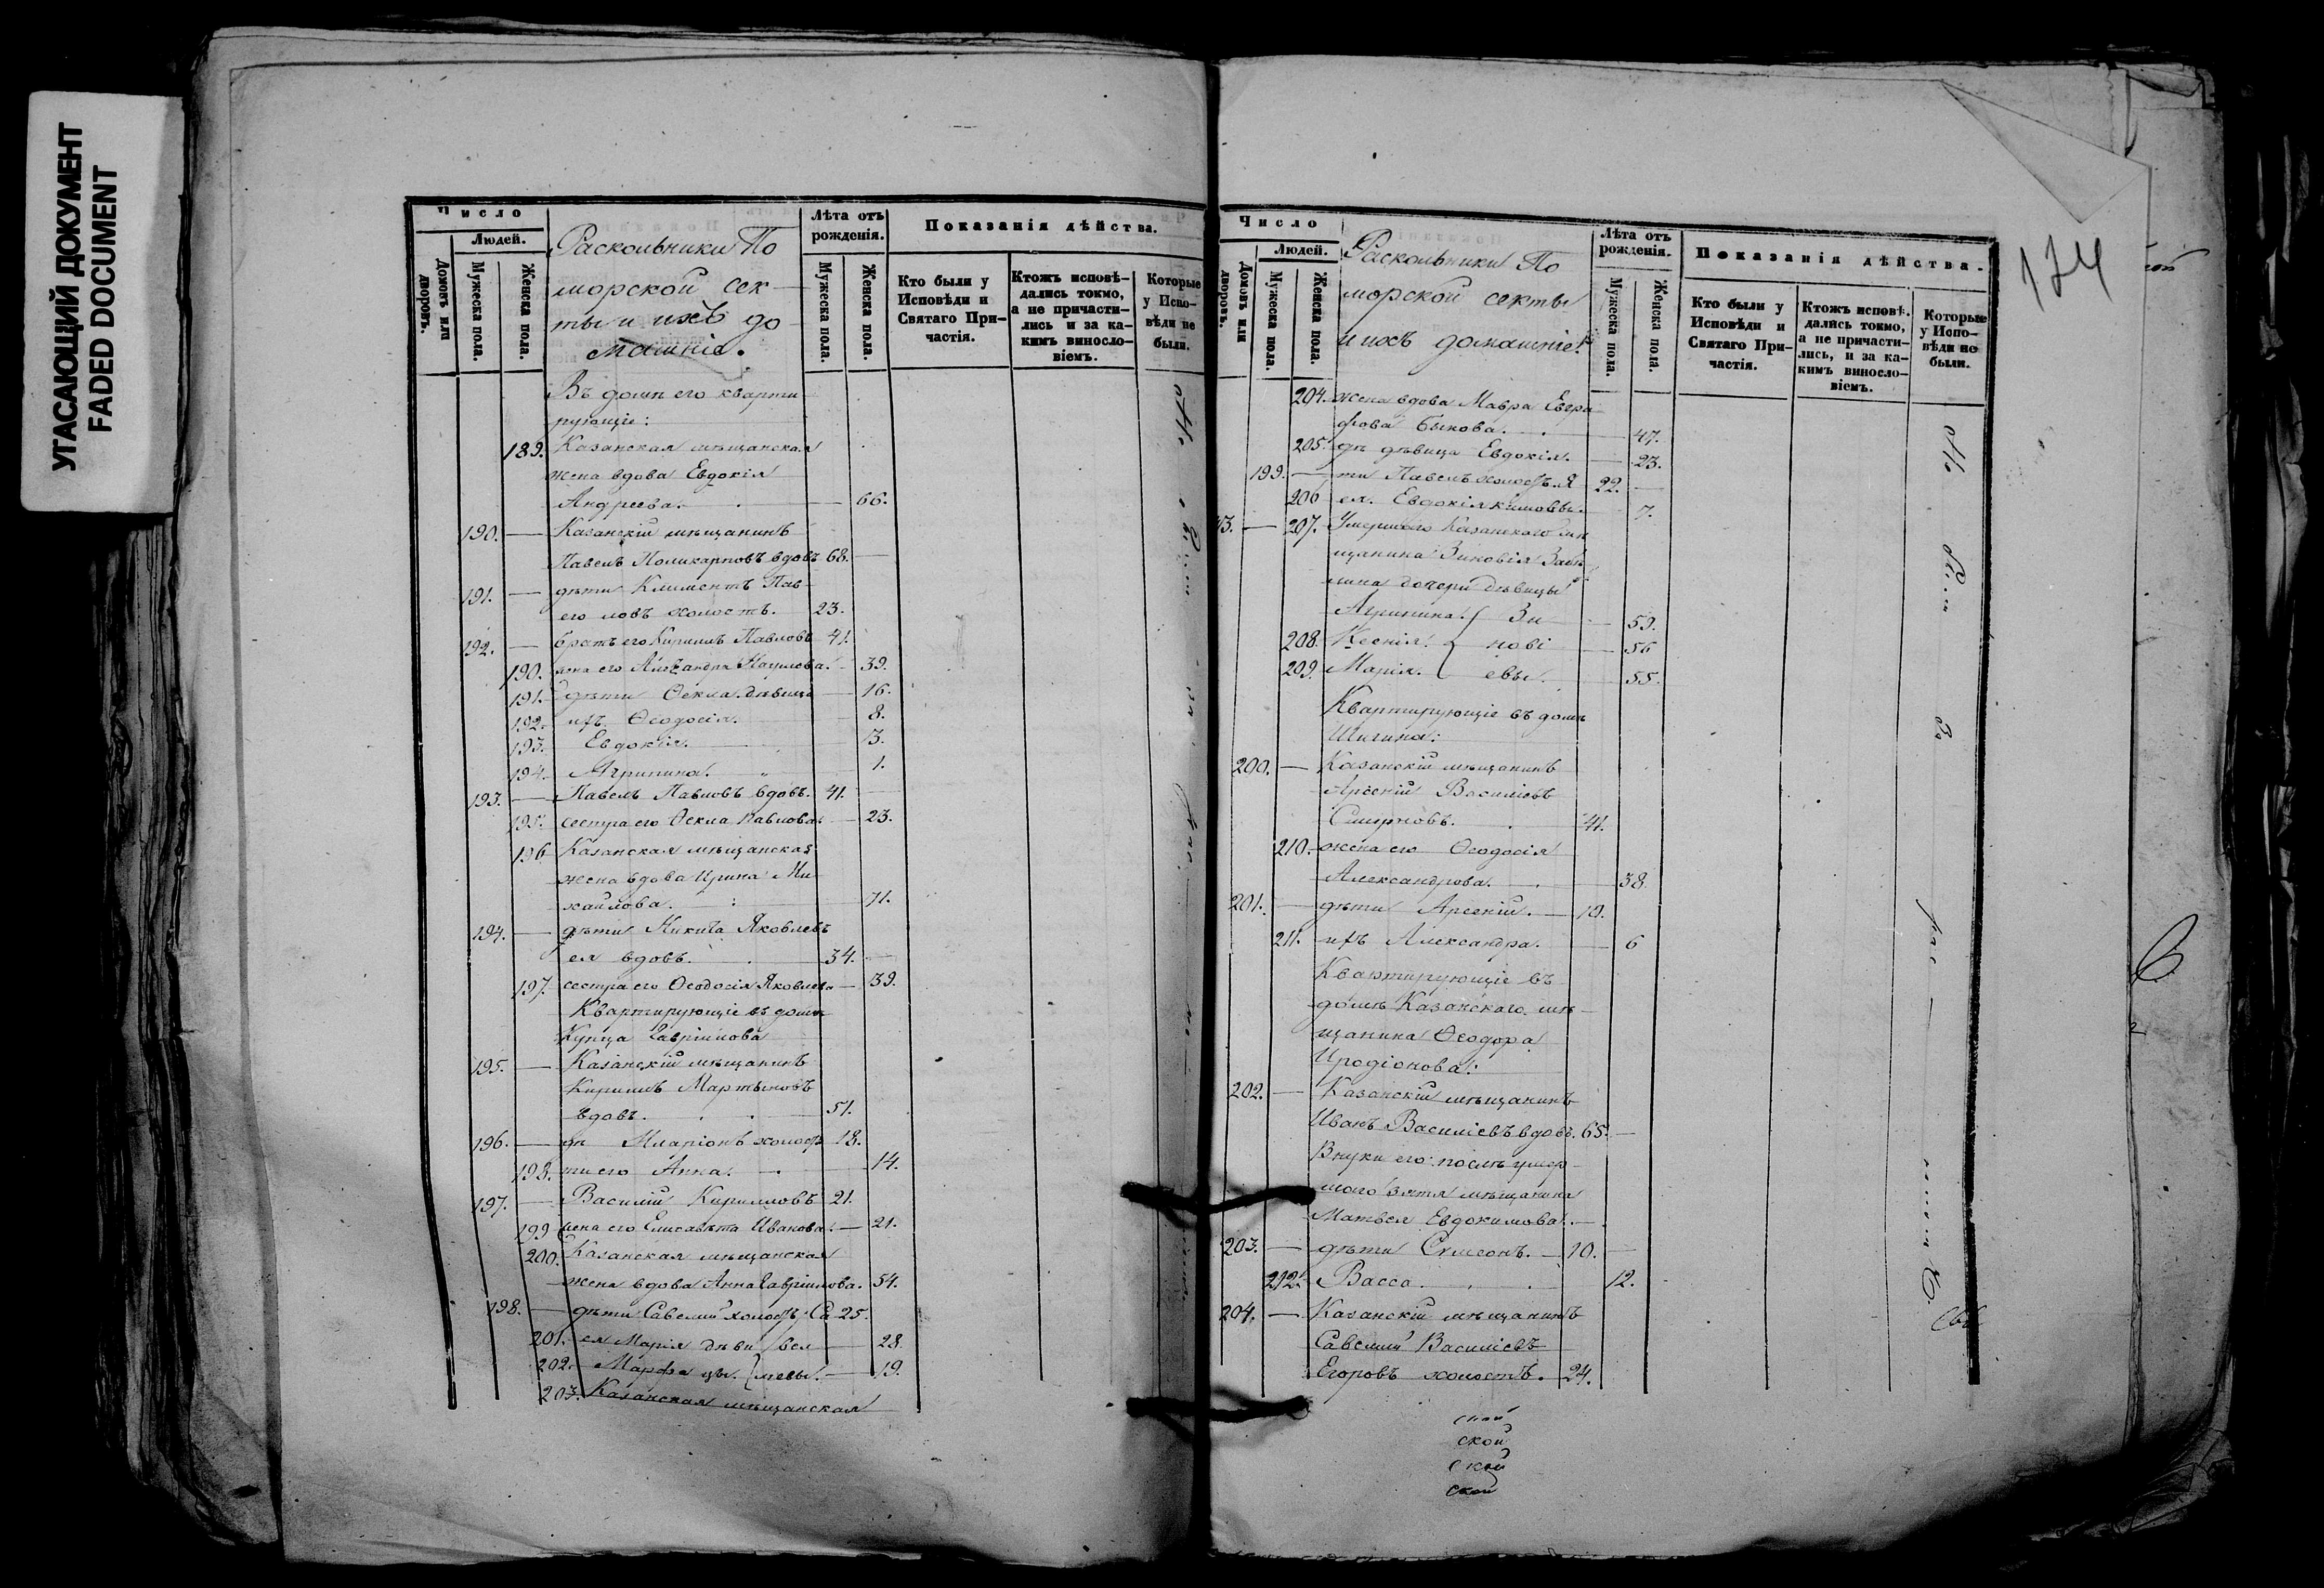 УГАСАЮЩИЙ ДОКУМЕНТ
FADED DOCUMENT
Число
Людей.
Домовъ или дворовъ.
Мужеска пола.
Женска пола.
Раскольники По
морской сек-
ты и ихъ до
машніе.
Лѣта отъ рожденія.
Мужеска пола.
Женска пола.
Показанія дѣйства.
Кто были у Исповѣди и Святаго При-частія.
Ктожъ исповѣ-дались токмо, а не причасти-лись и за ка-кимъ виносло-віемъ.
Которые у Испо-вѣди не были.
Въ домѣ его кварти
рующіе:
189. Казанская мѣщанская
жена вдова Евдокія
Андреева. 66.
190. — Казанскій мѣщанинъ
Павелъ Поликарповъ вдовъ 68.
191. — дѣти Климентъ Пав-
его ловъ холостъ. 23.
192. — братъ его Кириллъ Павловъ 41.
190. жена его Александра 39.
191. дѣти Ѳекла девица 16.
192. ихъ Ѳеодосія. 8.
193. Евдокія. 3.
194. Агрипина. 1.
193. — Павелъ Павловъ вдовъ. 41.
195. сестра его Ѳекла Павлова. 23.
196 Казанская мѣщанская
жена вдова Ирина Ми
хайлова. 71.
194. — дѣти Никита Яковлевъ
ея вдовъ. 34.
197. сестра его Ѳеодосія Яковлева 39.
Квартирующіе въ домѣ
Купца Гавріилова
195. — Казанскій мѣщанинъ
Кириллъ Мартыновъ
вдовъ. 51.
196. — дѣ Иларіонъ холостъ 18.
198. ти его Анна. 14.
197. — Василій Кирилловъ 21.
199 жена его Елисавета Иванова. — 21.
200. Казанская мѣщанская
жена вдова Анна Гавріилова. 54.
198. — дѣти Савелій холостъ Са 25.
201. ея Марія дѣви вел 28
202. Марфа цы. 19.
203. Казанская мѣщанская
Число
Людей.
Домовъ или дворовъ.
Мужеска пола.
Женска пола.
Раскольники По
морской секты
и ихъ домашніе.
Лѣта отъ рожденія.
Мужеска пола.
Женска пола.
Показанія дѣйства.
Кто были у Исповѣди и Святаго При-частія.
Ктожъ исповѣ-дались токмо, а не причасти-лись, и за ка-кимъ виносло-віемъ.
Которые у Испо-вѣди не были.
174
204. жена вдова Мавра Евгра
фова Быкова. 47.
205. дѣ дѣвица Евдокія. 23.
199. — ти Павелъ холостъ. Я 22.
206 ея. Евдокія кимовы. 7.
207. Умершаго Казанскаго мѣ
щанина Зиновія
дочери дѣвицы
Агрипина. Зи 59.
208. Ксенія. нові 56
209. Марія. евы. 55.
Квартирующіе въ домѣ
Шигина:
200. — Казанскій мѣщанинъ
Арсеній Василіевъ
Смирновъ. 41.
210. жена его Ѳеодосія
Александрова. 38
201. — дѣти Арсеній. — 10.
211. ихъ Александра. 6
Квартирующіе въ
домѣ Казанскаго мѣ-
щанина Ѳеодора
Иродіонова:
202. — Казанскій мѣщанинъ
Иванъ Василіевъ вдовъ. 65.
Внуки его послѣ умер
шаго зятя мѣщанина
Матвея Евдокимова. —
203. — дѣти Симеонъ. — 10.
212. Васса. 12.
204. — Казанскій мѣщанинъ
Савелій Василіевъ
Егоровъ холостъ. 24.
ской
ской
ской
ской